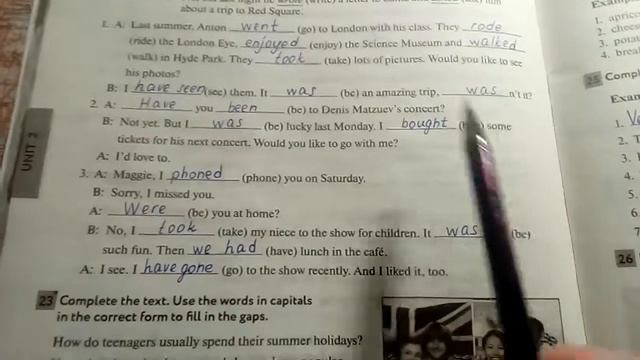 about a trip to Red Square.
1. A: Last summer, Anton went (go) to London with his class. They rode
(ride) the London Eye, enjoyed (enjoy) the Science Museum and walked
(walk) in Hyde Park. They took (take) lots of pictures. Would you like to see
his photos?
B: I have seen (see) them. It was (be) an amazing trip, was n't it?
2. A: Have you been (be) to Denis Matzuev's concert?
B: Not yet. But I was (be) lucky last Monday. I bought some
tickets for his next concert. Would you like to go with me?
A: I'd love to.
3. A: Maggie, I phoned (phone) you on Saturday.
B: Sorry, I missed you.
A: Were (be) you at home?
B: No, I took (take) my niece to the show for children. It was (be)
such fun. Then we had (have) lunch in the café.
A: I see. I have gone (go) to the show recently. And I liked it, too.
UNIT 2
23 Complete the text. Use the words in capitals
in the correct form to fill in the gaps.
How do teenagers usually spend their summer holidays?
1. apric
2. chees
3. potat
4. brea
25 Comp
Exam
1. V
2. T
3.
4.
5.
6.
7.
26